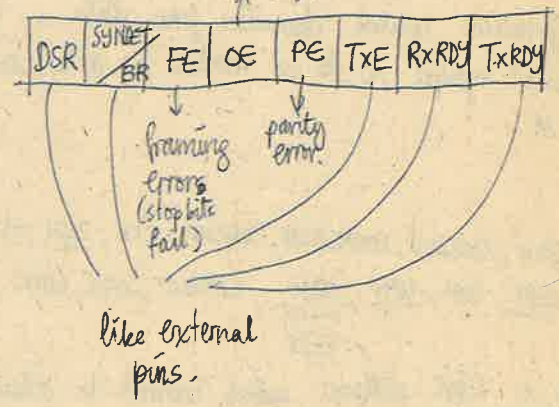 DSR SYNDET/BR FE OE PE TxE RxRDY TxRDY
framing
errors
(stop bits
fail)
parity
error.
like external
pins.